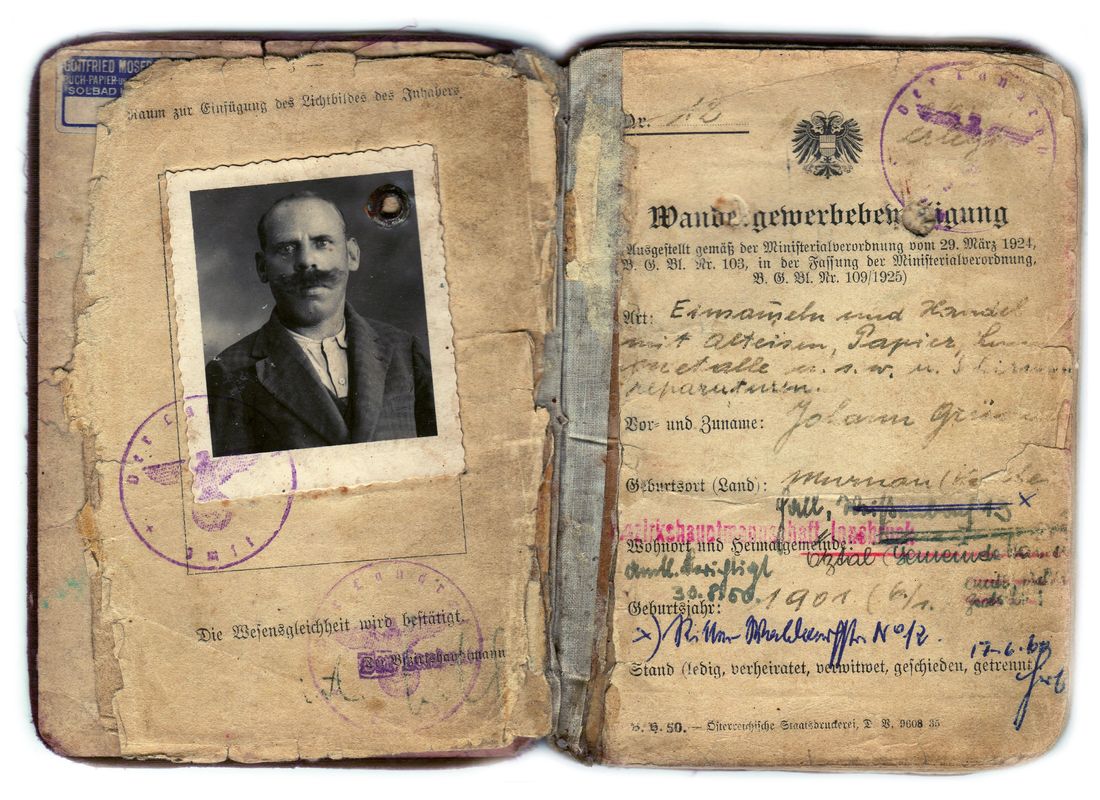 GOTTFRIED MOSER
BUCH-PAPIER-
SOLBAD
Raum zur Einfügung des Lichtbildes des Inhabers.
Der Landr
Imst
Der Landr
Die Wesensgleichheit wird bestätigt.
Der Bezirkshauptmann
Nr. 12
Der Landra
Wandergewerbebew igung
Ausgestellt gemäß der Ministerialverordnung vom 29. März 1924,
B. G. Bl. Nr. 103, in der Fassung der Ministerialverordnung,
B. G. Bl. Nr. 109/1925)
Art: Einsammeln und Handel
mit Alteisen, Papier,
Metalle u. s. w. u. Schirm
reparaturen.
Vor- und Zuname: Johann
Geburtsort (Land): Murnau
Hall,
Bezirkshauptmannschaft Innsbruck
Wohnort und Heimatgemeinde: Ötztal (Gemeinde
Amtl. berichtigt
30.8.50.
Geburtsjahr: 1901
x) Ritter Waldaufstr. No 12.
17.6.
Stand (ledig, verheiratet, verwitwet, geschieden, getrennt
B. H. 50. — Österreichische Staatsdruckerei, D. V. 9608 35